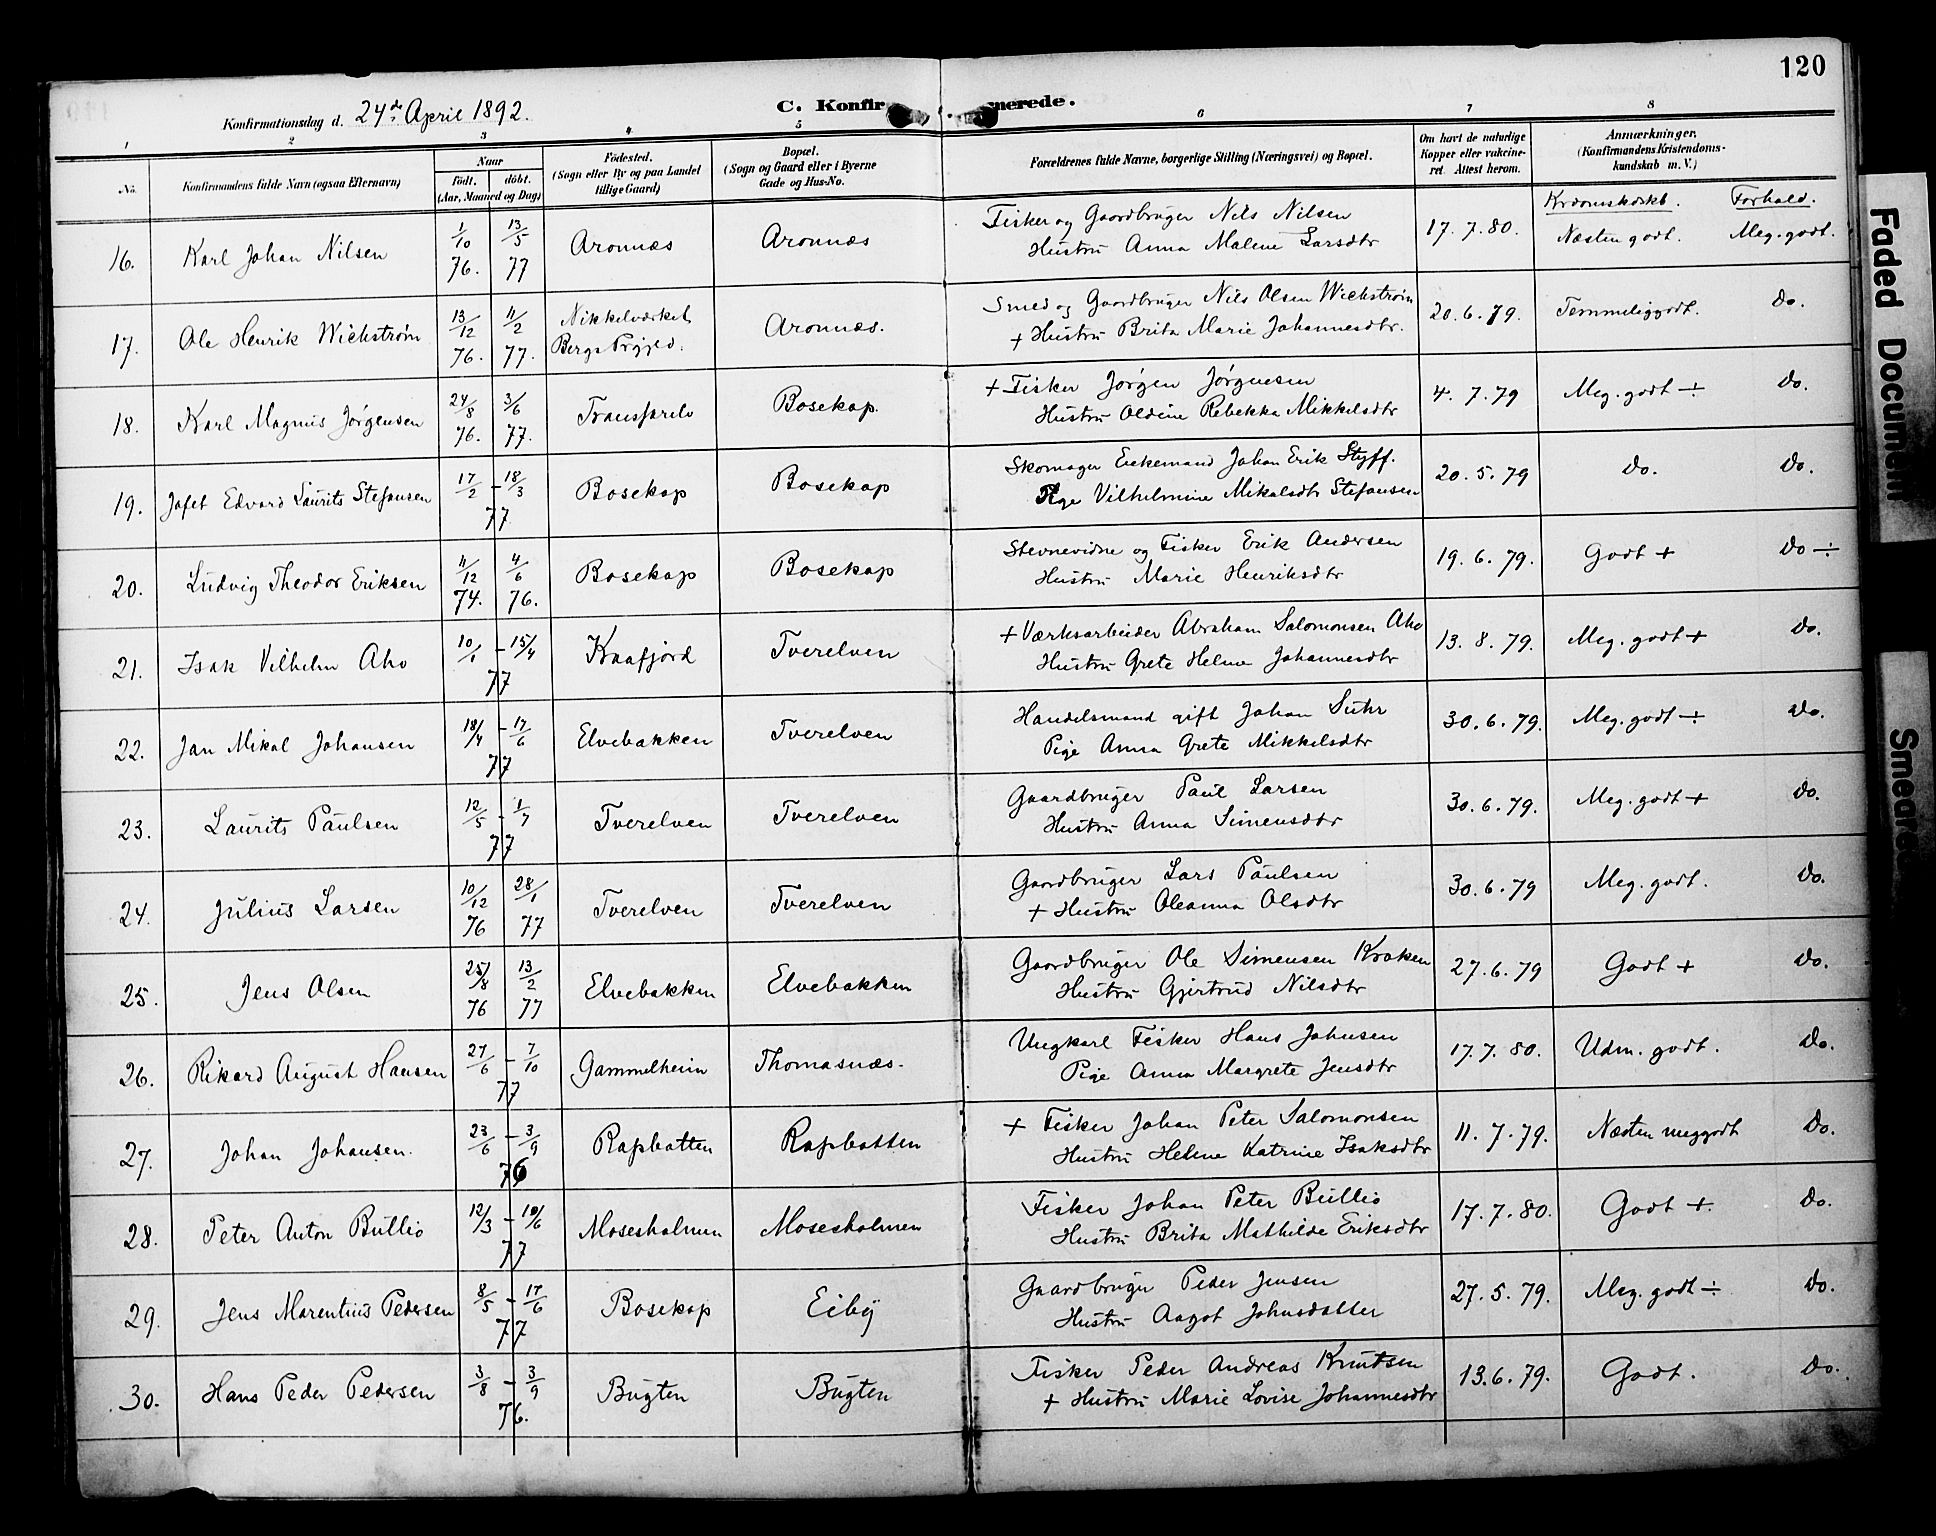 120
Konfirmationsdag d. 24de April 1892.
C. Konfirmerede.
1 2 3 4 5 6 7 8
No. Konfirmandens fulde Navn (ogsaa Efternavn) Naar Født. døbt. (Aar, Maaned og Dag) Fødested. (Sogn eller By og paa Landet tillige Gaard) Bopæl. (Sogn og Gaard eller i Byerne Gade og Hus-No. Forældrenes fulde Navne, borgerlige Stilling (Næringsvei) og Bopæl. Om havt de naturlige Kopper eller vakcineret Attest herom. Anmærkninger. (Konfirmandens Kristendomskundskab m. V.)
Krdomskdskb. Forhold.
16. Karl Johan Nilsen 1/10 76. 13/5 77 Aronnæs Aronnæs Fisker og Gaardbruger Nils Nilsen 17.7.80. Næsten godt. Meg. godt.
Hustru Anna Malene Larsdtr
17. Ole Henrik Wickstrøm 13/12 76. 11/2 77. Nikkelværket Bergs Prgjld. Aronnæs. Smed og Gaardbruger Nils Olsen Wickstrøm 20.6.79. Temmelig godt. do.
+ Hustru Brita Marie Johannesdtr.
18. Karl Magnus Jørgensen 24/8 76. 3/6 77. Transfarelv Bosekop. + Fisker Jørgen Jørgensen 4.7.79 Meg. godt ÷ do.
Hustru Oldine Rebekka Mikkelsdtr
19. Jafet Edvard Laurits Stefansen 17/2 - 18/3 77 Bosekop Bosekop Skomager Enkemand Johan Erik Styff. 20.5.79 do. do.
Pige Vilhelmine Mikalsdtr Stefansen
20. Ludvig Theodor Eriksen 11/12 74. 4/6 76. Bosekop Bosekop Stevnevidne og Fisker Erik Andersen 19.6.79. Godt + do ÷
Hustru Marie Henriksdtr
21. Isak Vilhelm Aho 10/1 - 15/4 77 Kaafjord Tverelven + Værksarbeider Abraham Salomonsen Aho 13.8.79. Meg. godt + do.
Hustru Grete Helene Johannesdtr
22. Jan Mikal Johansen 18/4 - 17/6 77 Elvebakken Tverelven Handelsmand gift Johan Suhr 30.6.79. Meg. godt ÷ do.
Pige Anna Grete Mikkelsdtr
23. Laurits Paulsen 12/5 - 1/7 77 Tverelven Tverelven Gaardbruger Paul Larsen 30.6.79. Meg. godt + do.
Hustru Anna Simensdtr
24. Julius Larsen 10/12 76 28/1 77 Tverelven Tverelven Gaardbruger Lars Paulsen 30.6.79 Meg. godt. do.
+ Hustru Oleanna Olsdtr
25. Jens Olsen 25/8 76 13/2 77 Elvebakken Elvebakken Gaardbruger Ole Simensen Kraken 27.6.79 Godt + do.
Hustru Gjertrud Nilsdtr
26. Rikard August Hansen 27/6 - 7/10 77 Gammelheim Thomasnæs. Ungkarl Fisker Hans Johnsen 17.7.80. Udm. godt. do.
Pige Anna Margrete Jensdtr
27. Johan Johansen. 23/6 - 3/9 76 Rapbatten Rapbatten + Fisker Johan Peter Salomonsen 11.7.79. Næsten meg godt do.
Hustru Helene Katrine Isaksdtr
28. Peter Anton Bullio 12/3 - 10/6 77 Mosesholmen Mosesholmen Fisker Johan Peter Bullio 17.7.80. Godt +. do.
Hustru Brita Mathilde Eriksdtr
29. Jens Marentius Pedersen 8/5 - 17/6 77 Bosekop Eiby Gaardbruger Peder Jensen 27.5.79. Meg. godt ÷ do.
Hustru Aagot Johnsdatter
30. Hans Peder Pedersen 3/8 - 3/9 76. Bugten Bugten Fisker Peder Andreas Knutsen 13.6.79. Godt. do.
+ Hustru Marie Lovise Johannesdtr
Faded Document
Smeared